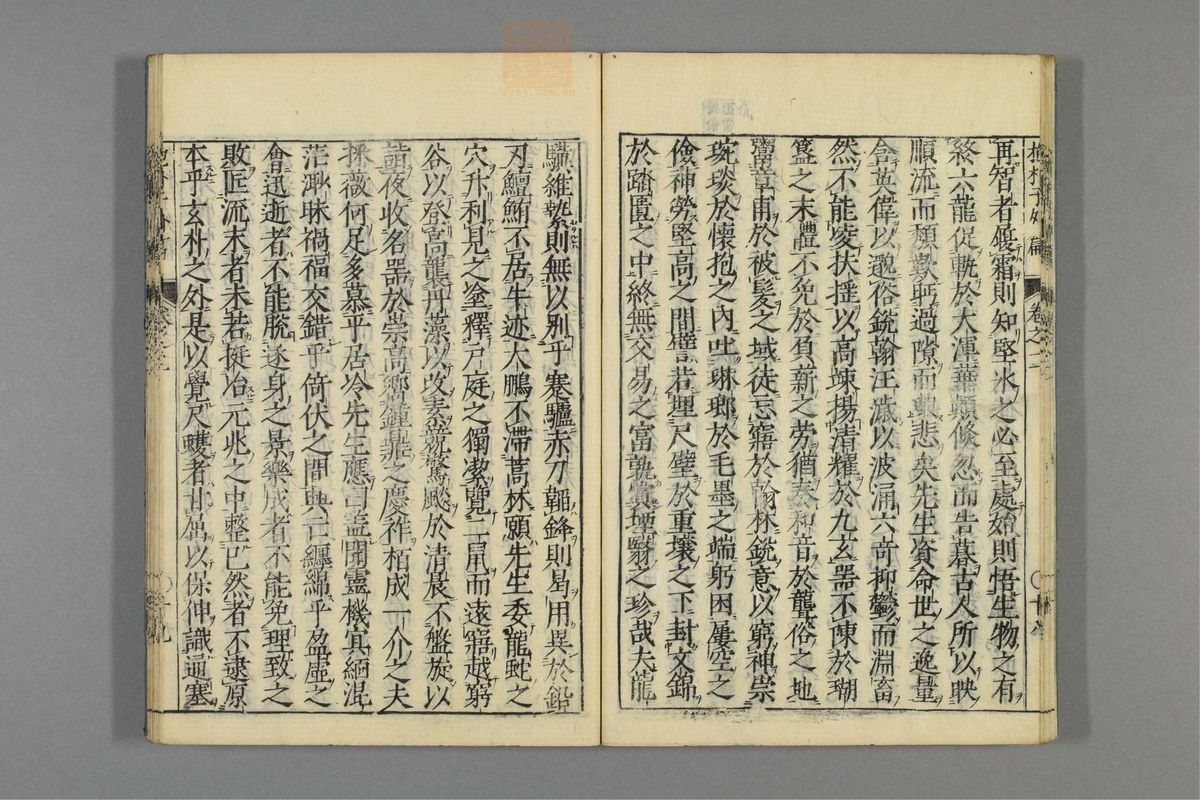 抱朴子外篇 卷之二
再智者履霜則知堅冰之必至處始則悟生物之有
終六龍促軌於大渾華顛倏忽而告暮古人所以映
順流而頹歎眄過隙而興悲矣先生資命世之逸量
含英偉以邈俗銳翰汪濊以波涌六奇抑鬱而淵畜
然不能凌扶搖以高竦揚清耀於九玄器不陳於瑚
簋之末體不免於負薪之勞猶奏和音於聾俗之地
鬻章甫於被髮之域徒忘寤於翰林銳意以窮神崇
琬琰於懷抱之內吐琳瑯於毛墨之端躬困屢空之
儉神勞堅高之間譬若埋尺璧於重壤之下封文錦
於踏匱之中終無交易之富孰賞堙翳之珍哉夫龍
驥維縶則無以別乎蹇驢赤刀韜鋒則曷用異於鉛
刃鱣鮪不居牛迹大鵬不滯蒿林願先生委龍蛇之
穴升利見之塗釋户庭之獨潔覽二鼠而遠寤越窮
谷以登高襲丹藻以改素競驚飈於清晨不盤旋以
錯夜收名器於崇高饗鍾鼎之慶祚栢成一介之夫
採薇何足多慕乎居泠先生應曰蓋聞靈機冥緬混
茫眇昧禍福交錯乎倚伏之間興亡纏綿乎盈虛之
會迅逝者不能脫逐身之景樂成者不能免理致之
敗匡流末者未若挺冶元兆之中整已然者不逮原
本乎玄朴之外是以覺尺蠖者甘屈以保伸識通塞